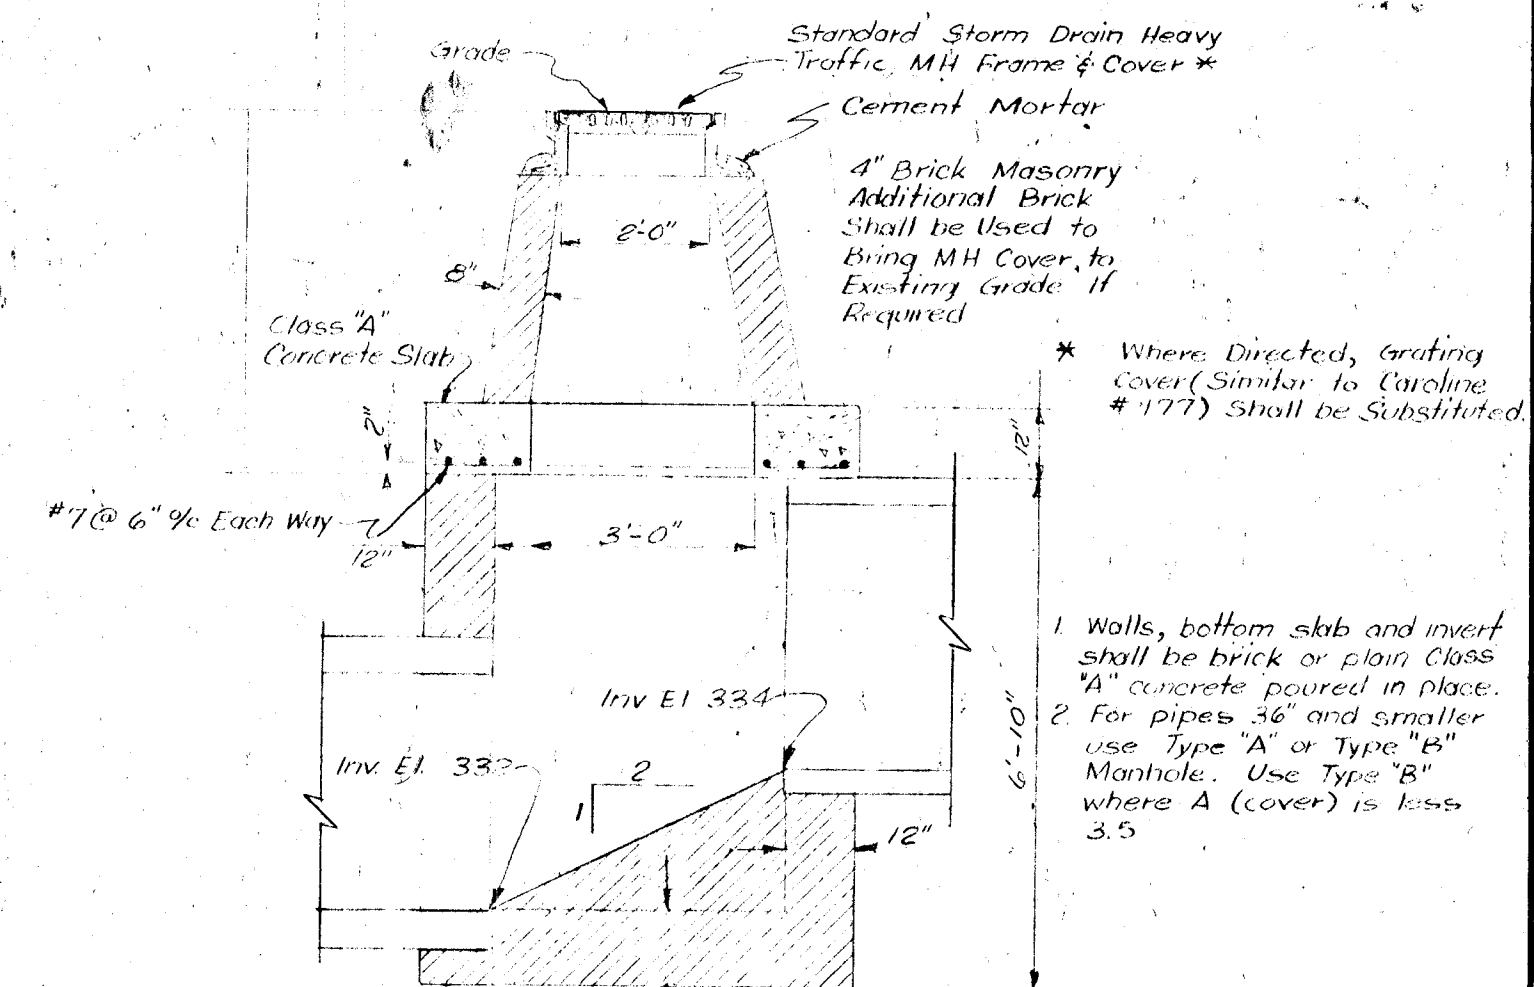 Grade
Standard Storm Drain Heavy
Traffic MH Frame & Cover *
Cement Mortar
4" Brick Masonry
Additional Brick
Shall be Used to
Bring MH Cover to
Existing Grade If
Required
2'-0"
8"
Class "A"
Concrete Slab
* Where Directed, Grating
Cover (Similar to Caroline
# 177) Shall be Substituted.
2"
12"
#7 @ 6" o/c Each Way
12"
3'-0"
1. Walls, bottom slab and invert
shall be brick or plain Class
"A" concrete poured in place.
2. For pipes 36" and smaller
use Type "A" or Type "B"
Manhole. Use Type "B"
where A (cover) is less
3.5
Inv El 334
6'-10"
Inv. El.
2
1
12"